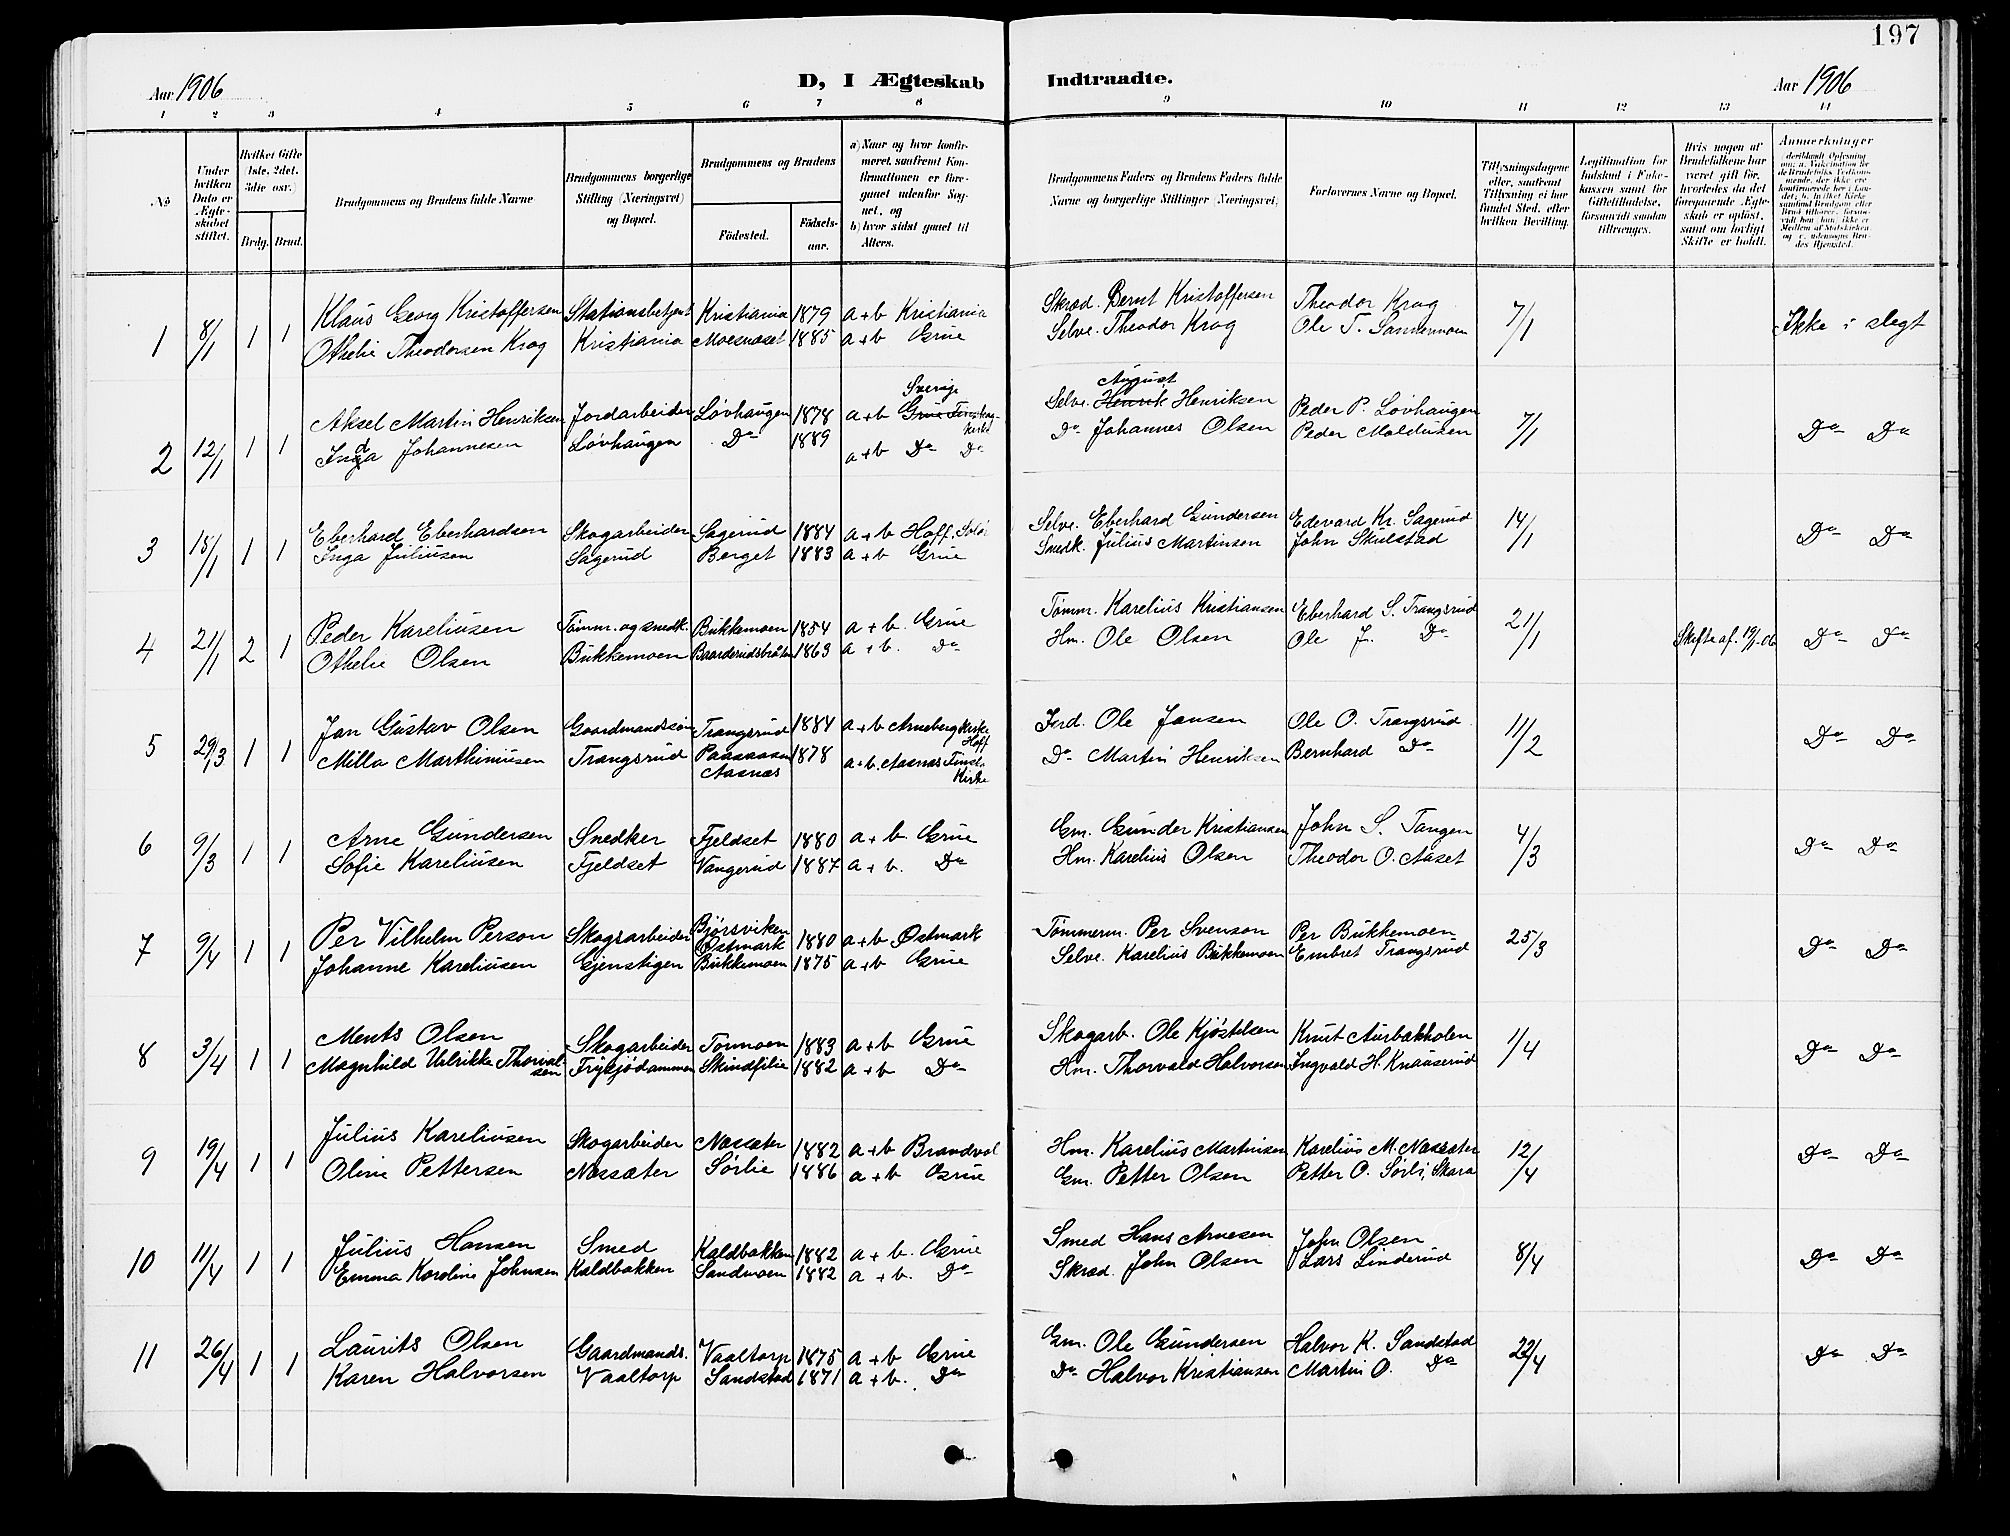 197
Aar 1906 D, I Ægteskab Indtraadte. Aar 1906
1 2 3 4 5 6 7 8 9 10 11 12 13 14
No
Under hvilken Dato er Ægteskabet stiftet.
Hvilket Gifte (1ste, 2det, 3die osv.)
Brdg. Brud.
Brudgommens og Brudens fulde Navne
Brudgommens borgerlige Stilling (Næringsvei) og Bopæl.
Brudgommens og Brudens
Födested. Födselsaar.
a) Naar og hvor konfirmeret, saafremt Konfirmationen er foregaaet udenfor Sognet, og
b) hvor sidst gaaet til Alters.
Brudgommens Faders og Brudens Faders fulde Navne og borgerlige Stillinger (Næringsvei).
Forlovernes Navne og Bopæl.
Tillysningsdagene eller, saafremt Tillysning ei har fundet Sted, efter hvilken Bevilling.
Legitimation for Indskud i Enkekassen samt for Giftetilladelse, forsaavidt saadan tiltrænges.
Hvis nogen af Brudefolkene har været gift før, hvorledes da det foregaaende Ægteskab er opløst, samt om lovligt Skifte er holdt.
Anmærkninger
1 8/1 1 1 Klaus Georg Kristoffersen Stationsbetjent Kristiania 1879 a+b Kristiania Skræd. Bernt Kristoffersen Theodor Krog 7/1 Ikke i slegt
Othelie Theodorsen Krog Kristiania Moesnæset 1885 a+b Grue Selve. Theodor Krog Ole T. Sannermoen
2 12/1 1 1 Aksel Martin Henriksen Jordarbeider Løvhaugen 1878 a+b Sverige Grue Finskog-kirke Selve. August Henrik Henriksen Peder P. Løvhaugen 7/1 Do Do
Inda Johannesen Løvhaugen Do 1889 a+b Do Do Do Johannes Olsen Peder Moldusen
3 18/1 1 1 Eberhard Eberhardsen Skogarbeider Sagerud 1884 a+b Hoff. Solør Selve. Eberhard Gundersen Edevard Kr. Sagerud 14/1 Do Do
Inga Juliusen Sagerud Berget 1883 a+b Grue Snedk. Julius Martinsen John Skulstad
4 21/1 2 1 Peder Kareliusen Tømm. og snedk. Bukkemoen 1854 a+b. Grue Tømm. Karelius Kristiansen Eberhard S. Trangsrud 21/1 Skifte af. 19/1-06 Do Do
Othelie Olsen Bukkemoen Baarderudsbråten 1863 a+b. Do Hm. Ole Olsen Ole J. Do
5 29/3 1 1 Jan Gustav Olsen Gaardmandssøn Trangsrud 1884 a+b Arneberg Kirke Hoff Ole Jansen Ole O. Trangsrud 11/2 Do Do
Milla Marthinusen Trangsrud Aasnæs 1878 a+b. Aasnæs Finsk. Kirke Do Martin Henriksen Bernhard Do
6 9/3 1 1 Arne Gundersen Snedker Fjeldset 1880 a+b. Grue Gm. Gunder Kristiansen John S. Tangen 4/3 Do Do
Sofie Kareliusen Fjeldset Vangerud 1887 a+b. Do Hm. Karelius Olsen Theodor O. Aaset
7 9/4 1 1 Per Vilhelm Person Skogsarbeider Bjørsviken Østmark 1880 a+b Østmark Tømmerm. Per Svenson Per Bukkemoen 25/3 Do Do
Johanne Kareliusen Gjenstigen Bukkemoen 1875 a+b Grue Selve. Karelius Bukkemoen Embret Trangsrud
8 3/4 1 1 Ments Olsen Skogarbeider Tormoen 1883 a+b Grue Skogarb. Ole Kjøstelsen Knut Aurbakholen 1/4 Do Do
Magnhild Ulrikke Thorvalsen Frysjødammen Skindfilie 1882 a+b Do Hm. Thorvald Halvorsen Ingvald H. Knauserud
9 19/4 1 1 Julius Kareliusen Skogarbeider Næssæter 1882 a+b Brandval Hm. Karelius Martinsen Karelius M. Næssæter 12/4 Do Do
Oline Pettersen Næssæter Sørlie 1886 a+b Grue Gm. Petter Olsen Petter O. Sørli, Skara
10 11/4 1 1 Julius Hansen Smed Kaldbakken 1882 a+b. Grue Smed Hans Arnesen John Olsen 8/4 Do Do
Emma Karoline Johnsen Kaldbakken Sandmoen 1882 a+b. Do Skræd. John Olsen Lars Linderud
11 26/4 1 1 Laurits Olsen Gaardmands. Vaaltorp 1875 a+b Grue Gm. Ole Gundersen Halvor K. Sandstad 22/4 Do Do
Karen Halvorsen Vaaltorp Sandstad 1871 a+b. Do Do Halvor Kristiansen Martin O. Do